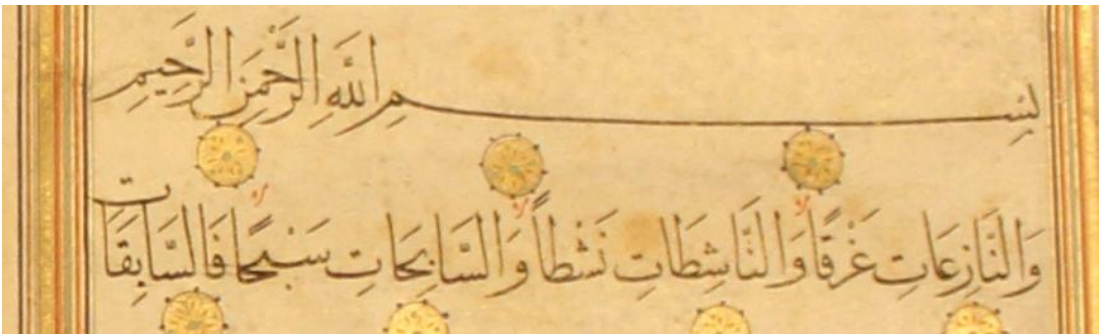 بِسْمِ اللَّهِ الرَّحْمَنِ الرَّحِيمِ
وَالنَّازِعَاتِ غَرْقًا وَالنَّاشِطَاتِ نَشْطاً وَالسَّابِحَاتِ سَبْحًا فَالسَّابِقَات